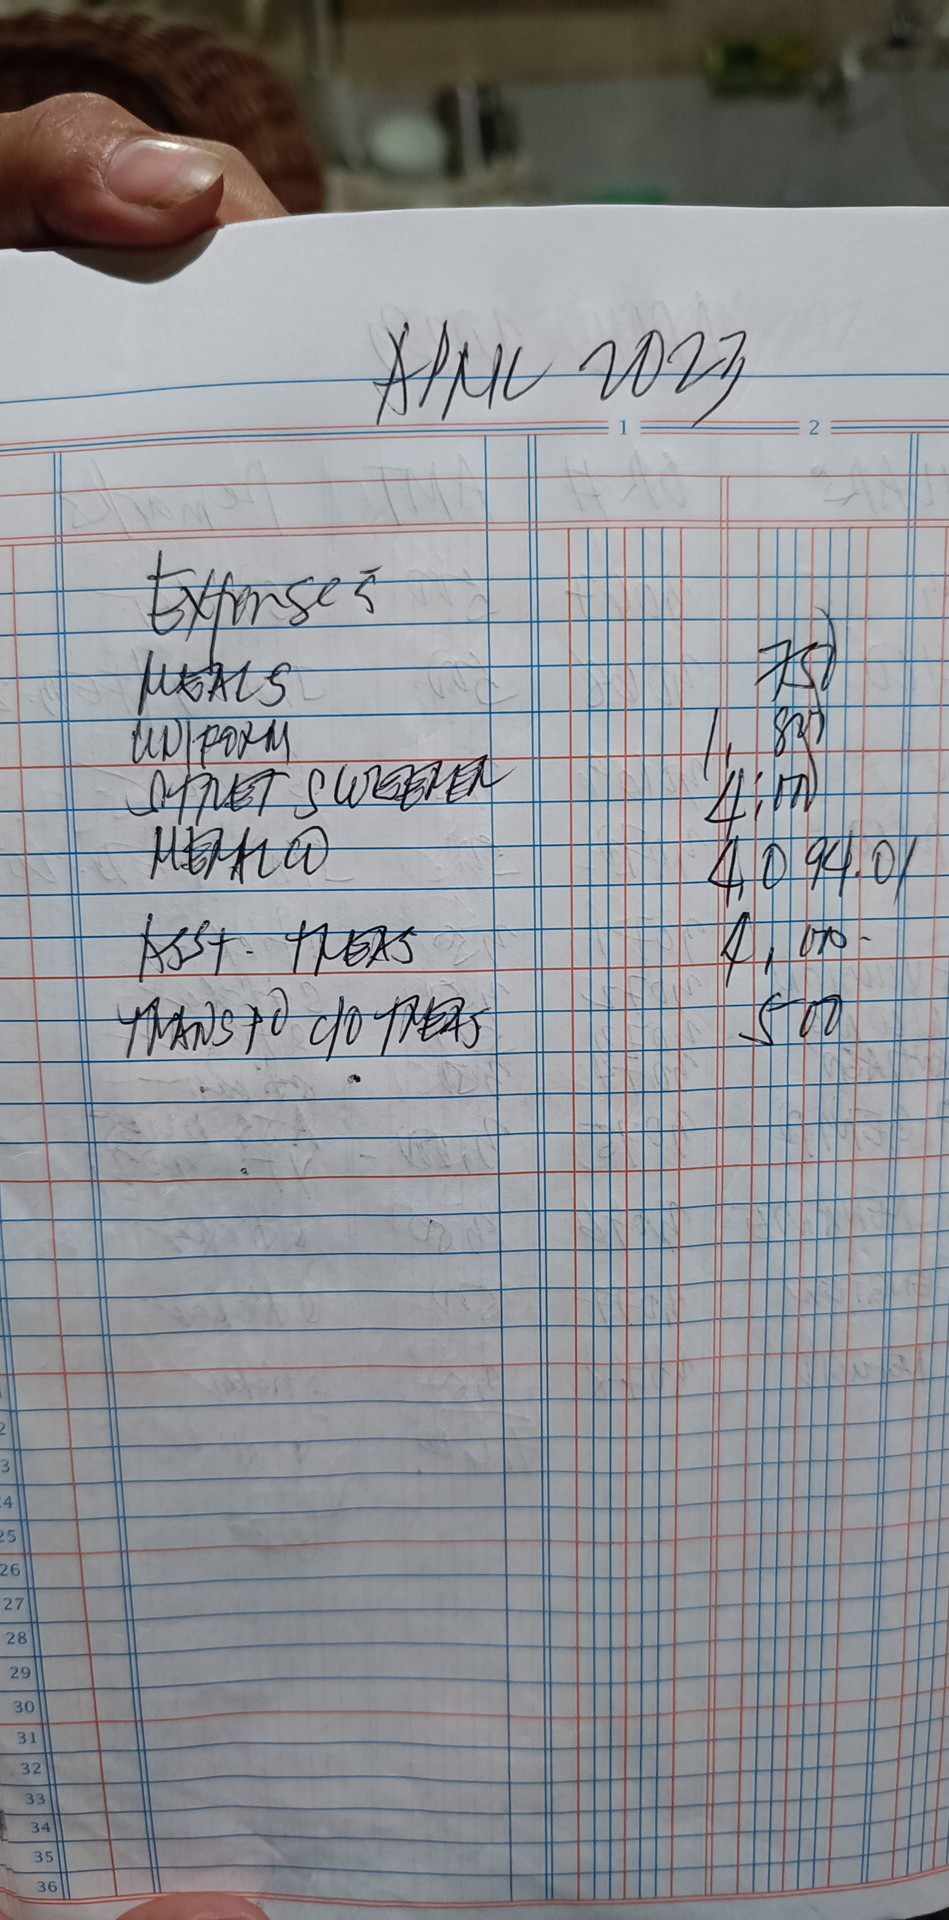 APRIL 2023
1 2
Expenses
MEALS 750
UNIFORM 1,800
STREET SWEEPER 4,000
MERALCO 4,094.01
ASST. TREAS 4,000-
TRANSPO c/o TREAS 500
25
26
27
28
29
30
31
32
33
34
35
36